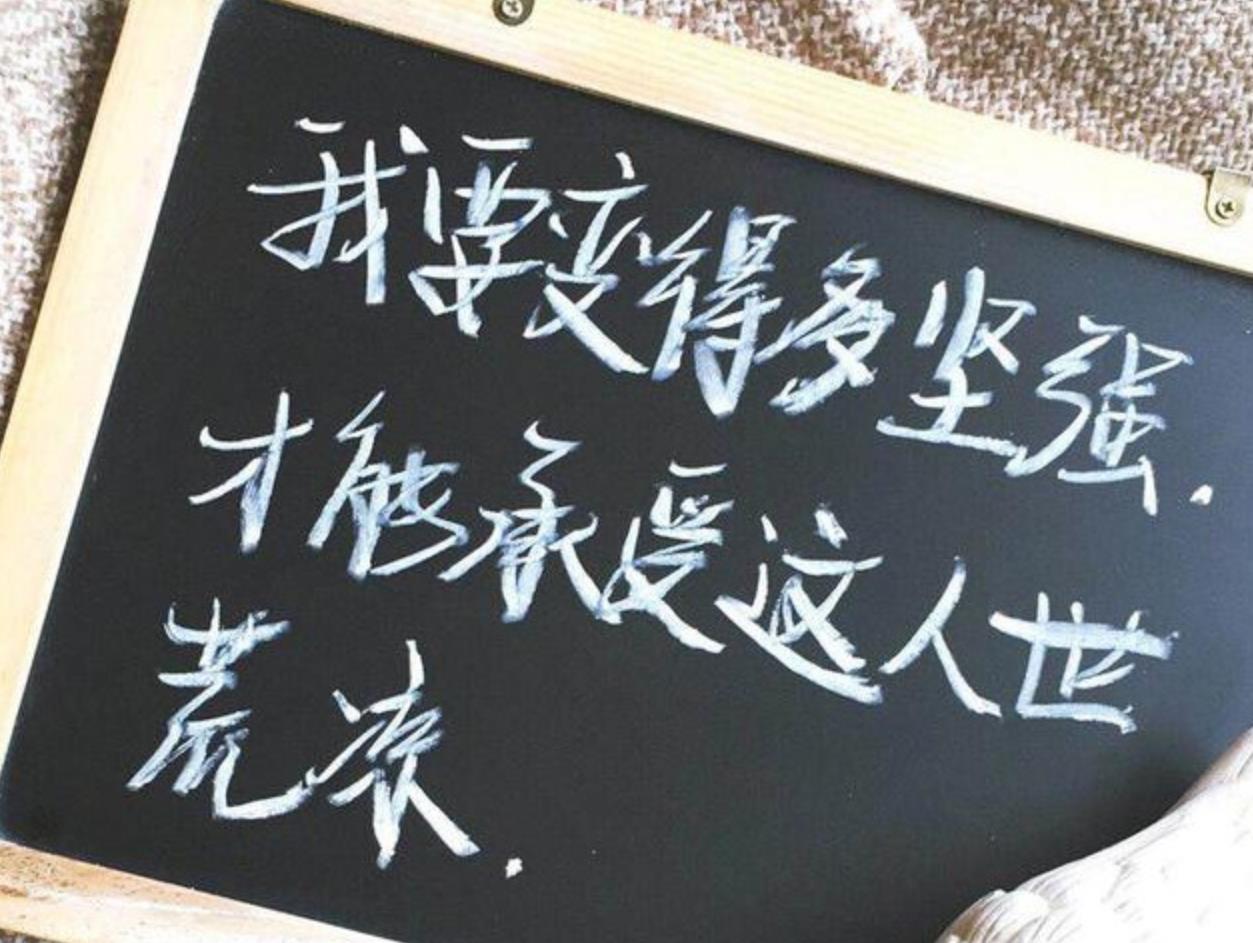 我要变得多坚强.
才能承受这人世
荒凉.